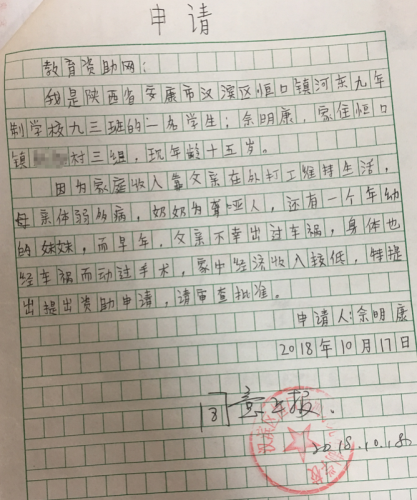 申请
教育资助网：
我是陕西省安康市汉滨区恒口镇河东九年
制学校九三班的一名学生；余明康，家住恒口
镇村三组，现年龄十五岁。
因为家庭收入靠父亲在外打工维持生活，
母亲体弱的病，奶奶为聋哑人，还有一个年幼
的妹妹，而早年，父亲不幸出过车祸，身体也
经车祸而动过手术，家中经济收入较低，特提
出提出资助申请，请审查批准。
申请人：余明康
2018年10月17日
同意上报.
2018.10.18